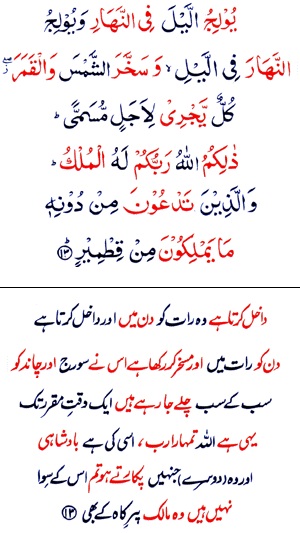 يُوْلِجُ الَّيْلَ فِى النَّهَارِ وَيُوْلِجُ
النَّهَارَ فِى الَّيْلِ ۙ وَسَخَّرَ الشَّمْسَ وَالْقَمَرَ ۖ ز
كُلٌّ يَّجْرِىْ لِاَجَلٍ مُّسَمًّى ؕ
ذٰلِكُمُ اللّٰهُ رَبُّكُمْ لَهُ الْمُلْكُ ؕ
وَالَّذِيْنَ تَدْعُوْنَ مِنْ دُوْنِهٖ
مَا يَمْلِكُوْنَ مِنْ قِطْمِيْرٍ ؕ ﴿۱۳﴾
داخل کرتا ہے وہ رات کو دن میں اور داخل کرتا ہے
دن کو رات میں اور مسخر کر رکھا ہے اس نے سورج اور چاند کو
سب کے سب چلے جا رہے ہیں ایک وقتِ مقرر تک
یہی ہے اللہ تمہارا رب، اسی کی ہے بادشاہی
اور وہ (دوسرے) جنہیں پکارتے ہو تم اس کے سوا
نہیں ہیں وہ مالک پرِکاہ کے بھی ﴿۱۳﴾